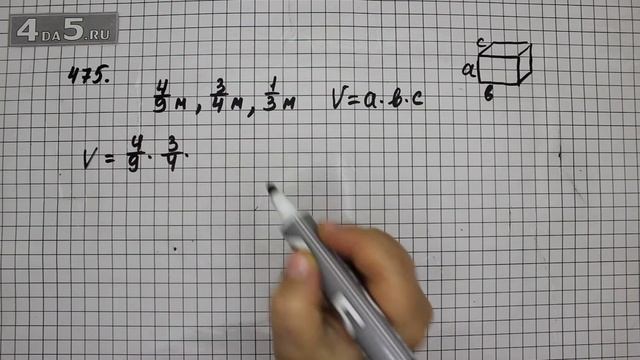 4DA5.RU
475.
4/9 м, 3/4 м, 1/3 м V = a · b · c
c
a
b
V = 4/9 · 3/4 ·